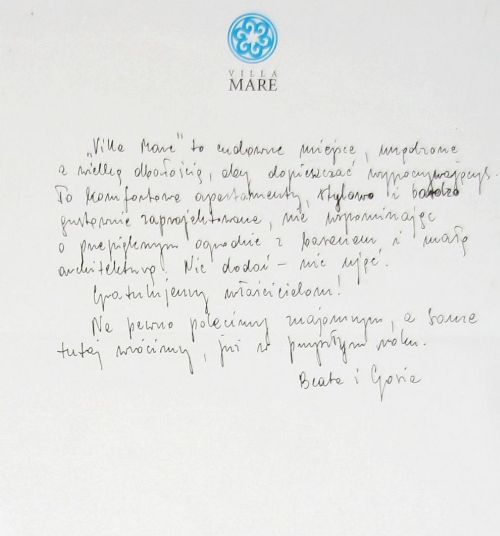 VILLA
MARE
„Villa Mare" to cudowne miejsce, urządzone
z wielką dbałością, aby dopieszczać wypoczywających.
To komfortowe apartamenty, stylowo i bardzo
gustownie zaprojektowane, nie wspominając
o przepięknym ogrodzie z basenem i małą
architekturą. Nic dodać – nic ująć.
Gratulujemy właścicielom!
Na pewno polecimy znajomym, a same
tutaj wrócimy, już w przyszłym roku.
Beata i Gosia